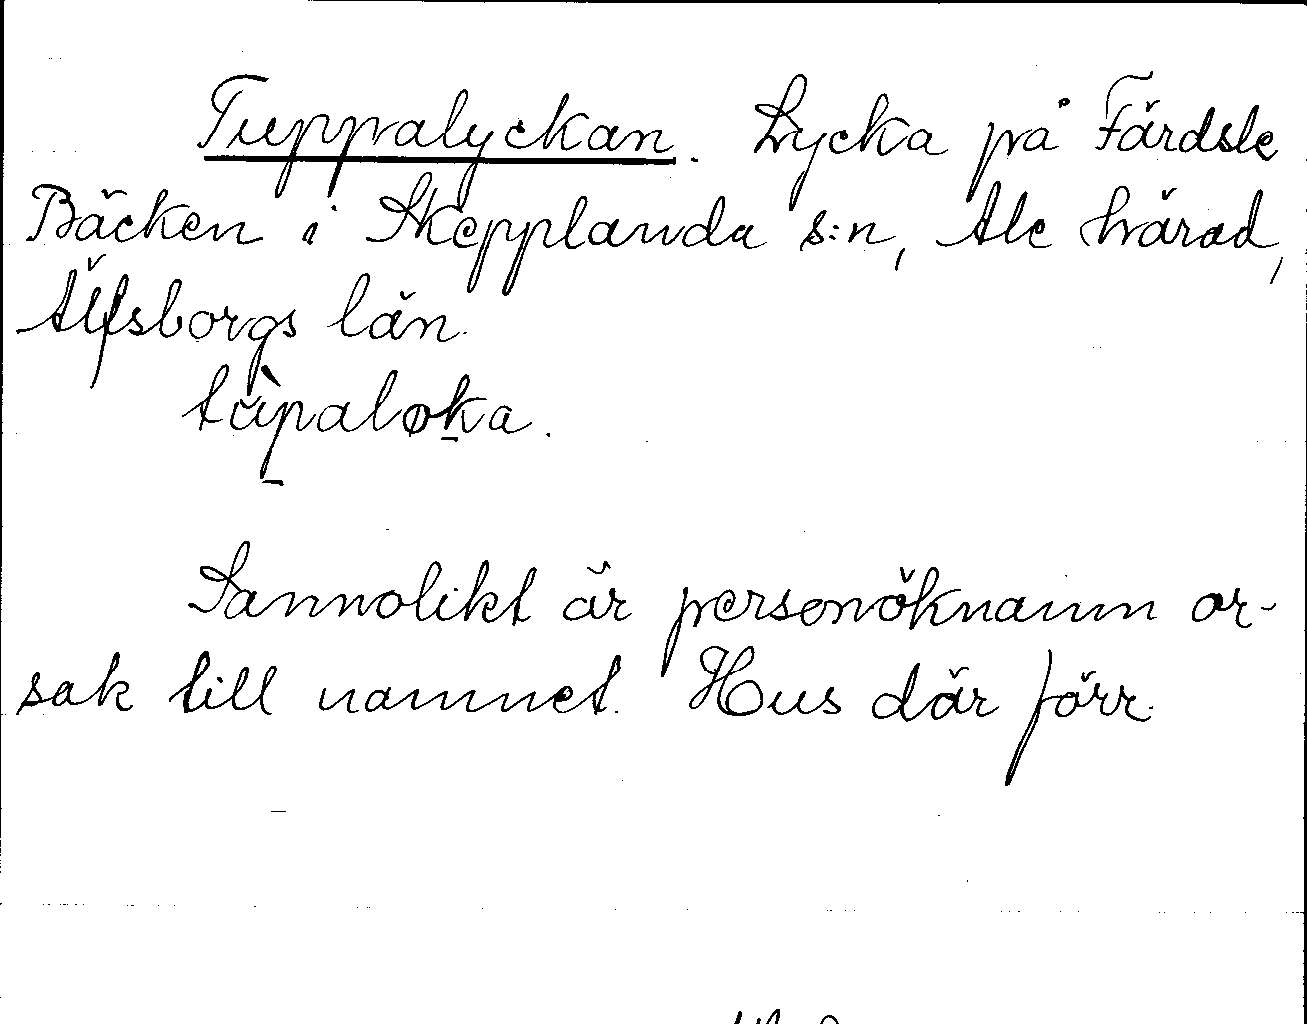 Tuppalyckan. Lycka på Färdsle
Bäcken i Skepplanda s:n, Ale härad,
Älfsborgs län.
tùpaløka.
Sannolikt är personöknamn or-
sak till namnet. Hus där förr.